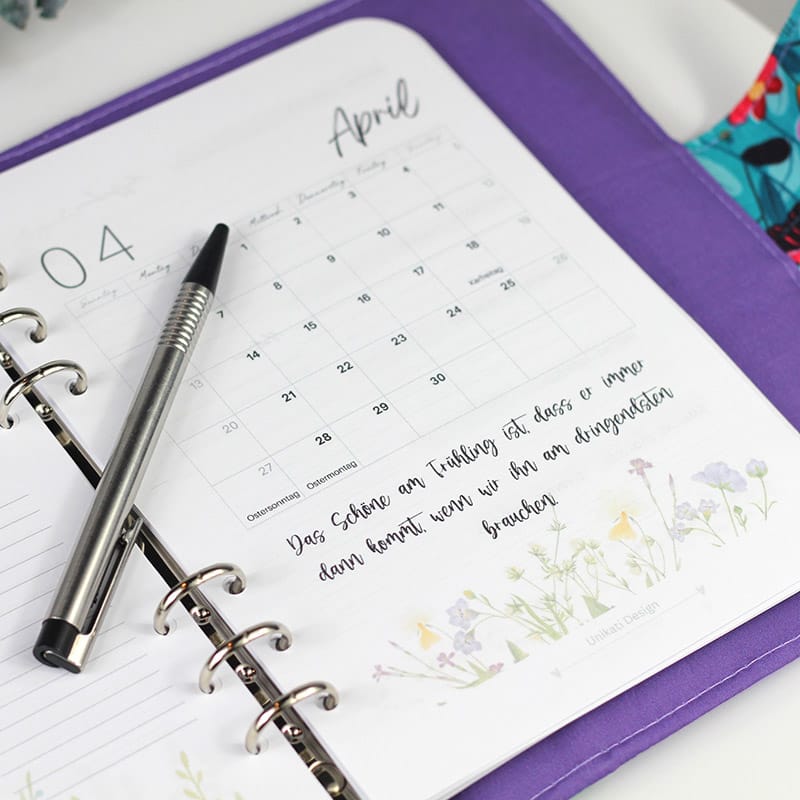 April
04
Sonntag Montag Mittwoch Donnerstag Freitag
1 2 3 4
7 8 9 10 11
13 14 15 16 17 18
Karfreitag
20 21 22 23 24 25 26
27 28 29 30
Ostersonntag Ostermontag
Das Schöne am Frühling ist, dass er immer
dann kommt, wenn wir ihn am dringendsten
brauchen.
Unikati Design